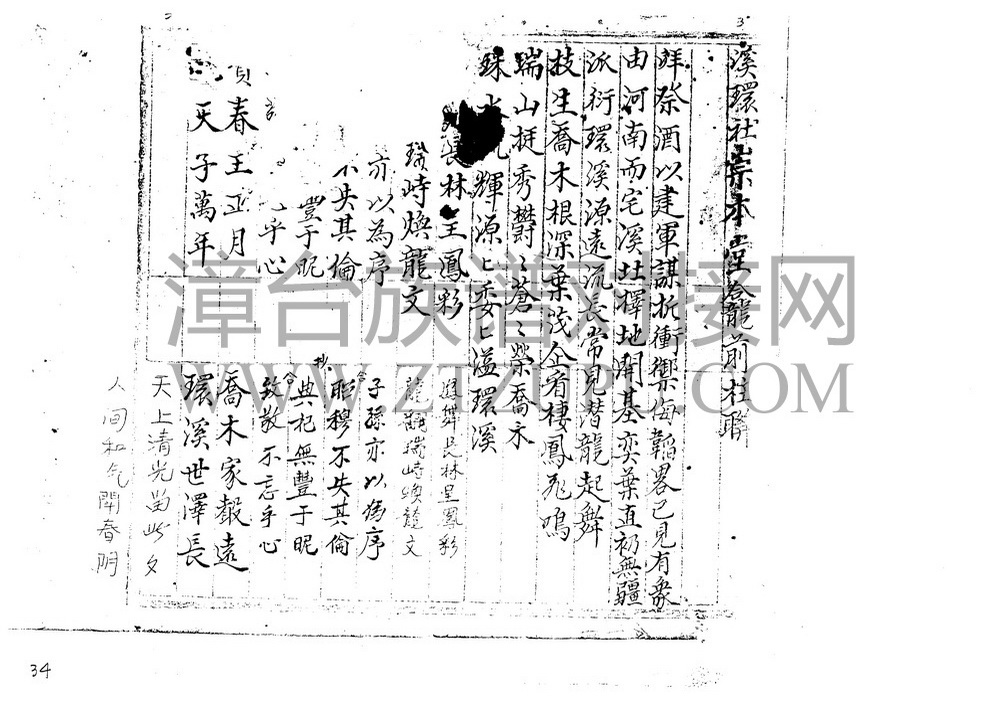 溪環社崇本堂龕前柱聯
祭酒以建軍謀折衝禦侮韜畧已見有象
由河南而宅溪邊擇地開基奕葉直初無疆
派衍環溪源遠流長常見潛龍起舞
技生喬木根深葉茂仝看棲鳳飛鳴
瑞山挺秀欝〻蒼〻榮喬木
珠水 輝源〻委〻溢環溪
長林呈鳳彩
瑞峙煥龍文
亦以為序
不失其倫
豐于昵
乎心
春王正月
天子萬年
長林呈鳳彩
瑞峙煥龍文
子孫亦以為序
昭穆不失其倫
典祀無豐于昵
致敬不忘乎心
喬木家聲遠
環溪世澤長
天上清光留此夕
人间和气開春阴
34
漳台族谱对接网
WWW.ZTZUPU.COM